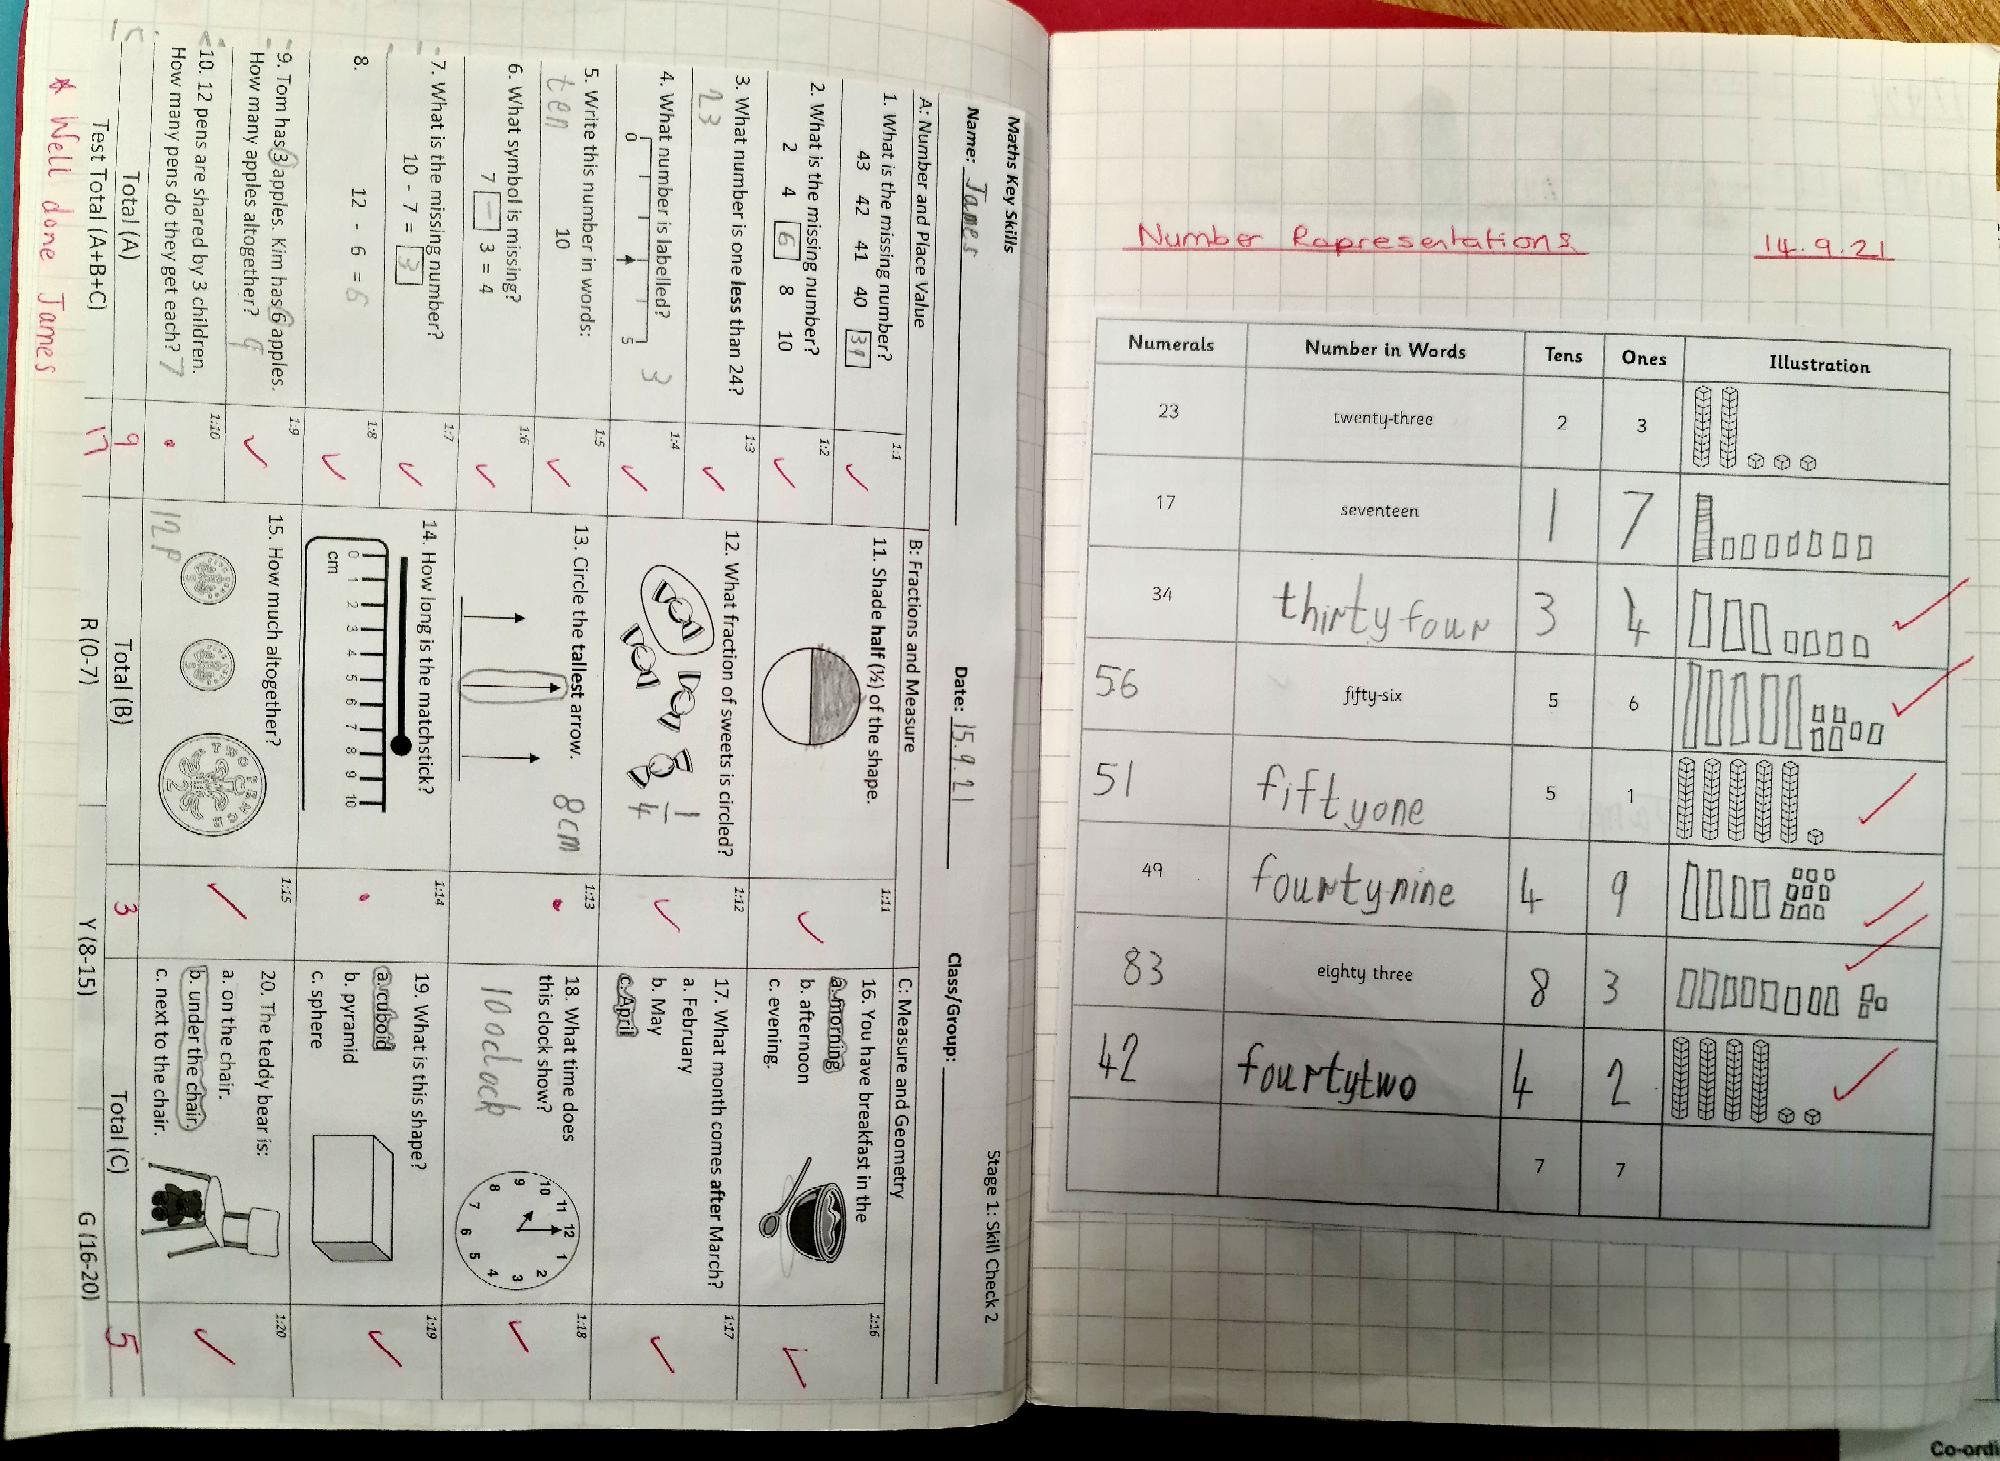 Maths Key Skills
Stage 1: Skill Check 2
Name: James
Date: 15.9.21
Class/Group:
A: Number and Place Value
1. What is the missing number?
43 42 41 40 39
1:1
2. What is the missing number?
2 4 6 8 10
1:2
3. What number is one less than 24?
23
1:3
4. What number is labelled?
0 5
3
1:4
5. Write this number in words:
10
ten
1:5
6. What symbol is missing?
7 - 3 = 4
1:6
7. What is the missing number?
10 - 7 = 3
1:7
8.
12 - 6 = 6
1:8
9. Tom has 3 apples. Kim has 6 apples.
How many apples altogether? 9
1:9
10. 12 pens are shared by 3 children.
How many pens do they get each? 7
1:10
Total (A) 9
B: Fractions and Measure
11. Shade half (½) of the shape.
1:11
12. What fraction of sweets is circled?
1/4
1:12
13. Circle the tallest arrow.
1:13
8cm
14. How long is the matchstick?
0 1 2 3 4 5 6 7 8 9 10
cm
1:14
15. How much altogether?
TWO PENCE
2
12p
1:15
Total (B) 3
C: Measure and Geometry
16. You have breakfast in the
a. morning
b. afternoon
c. evening.
1:16
17. What month comes after March?
a. February
b. May
c. April
1:17
18. What time does
this clock show?
10oclock
12 1 2 3 4 5 6 7 8 9 10 11
1:18
19. What is this shape?
a. cuboid
b. pyramid
c. sphere
1:19
20. The teddy bear is:
a. on the chair.
b. under the chair.
c. next to the chair.
1:20
Total (C) 5
Test Total (A+B+C) 17 R (0-7) Y (8-15) G (16-20)
* Well done James
Number Rapresentations 14.9.21
Numerals Number in Words Tens Ones Illustration
23 twenty-three 2 3
17 seventeen 1 7
34 thirty four 3 4
56 fifty-six 5 6
51 fiftyone 5 1
49 fourtynine 4 9
83 eighty three 8 3
42 fourtytwo 4 2
7 7
Co-ordi